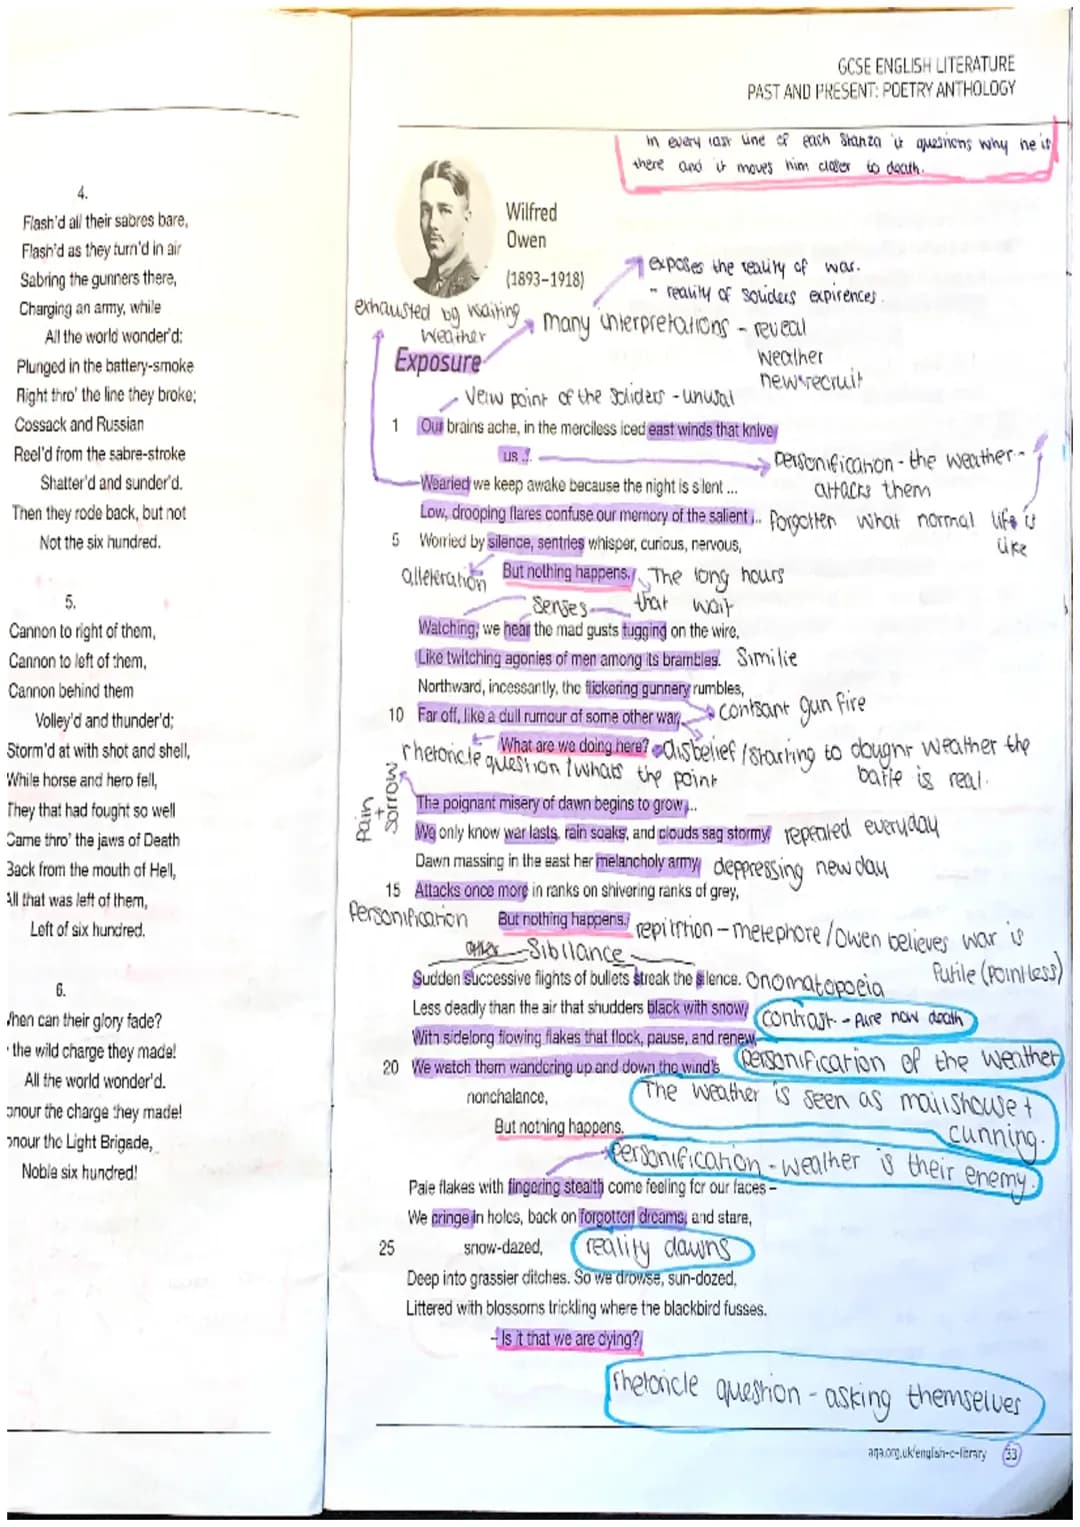 4.
Flash'd all their sabres bare,
Flash'd as they turn'd in air
Sabring the gunners there,
Charging an army, while
All the world wonder'd:
Plunged in the battery-smoke
Right thro' the line they broke;
Cossack and Russian
Reel'd from the sabre-stroke
Shatter'd and sunder'd.
Then they rode back, but not
Not the six hundred.
5.
Cannon to right of them,
Cannon to left of them,
Cannon behind them
Volley'd and thunder'd;
Storm'd at with shot and shell,
While horse and hero fell,
They that had fought so well
Came thro' the jaws of Death
Back from the mouth of Hell,
All that was left of them,
Left of six hundred.
6.
When can their glory fade?
the wild charge they made!
All the world wonder'd.
onour the charge they made!
onour the Light Brigade,
Noble six hundred!
GCSE ENGLISH LITERATURE
PAST AND PRESENT: POETRY ANTHOLOGY
In every last line of each stanza it questions why he is
there and it moves him closer to death.
Wilfred
Owen
(1893–1918)
exposes the reality of war.
- reality of soliders expirences.
exhausted by waiting
weather
many interpretations - reveal
weather
new recruit
Exposure
Veiw point of the Soliders - unusal
1 Our brains ache, in the merciless iced east winds that knive
us ...
personification - the weather
attacks them
Wearied we keep awake because the night is silent ...
Low, drooping flares confuse our memory of the salient ...
forgotten what normal life is
like
5 Worried by silence, sentries whisper, curious, nervous,
alleteration
But nothing happens.
The long hours
that wait
Senses
Watching, we hear the mad gusts tugging on the wire,
Like twitching agonies of men among its brambles. Similie
Northward, incessantly, the flickering gunnery rumbles,
10 Far off, like a dull rumour of some other war,
contsant gun fire
What are we doing here?
disbelief / starting to dought weather the
batle is real.
rhetoricle question / whats the point
Pain + sorrow
The poignant misery of dawn begins to grow ...
We only know war lasts, rain soaks, and clouds sag stormy. repeated everyday
Dawn massing in the east her melancholy army deppressing new day
15 Attacks once more in ranks on shivering ranks of grey,
Personification
But nothing happens.
repitition - metephore / Owen believes war is
futile (pointless)
Sibilance
Sudden successive flights of bullets streak the silence. Onomatopoeia
Less deadly than the air that shudders black with snow,
contrast - pure now death
With sidelong flowing flakes that flock, pause, and renew,
personification of the weather
20 We watch them wandering up and down the wind's
nonchalance,
The weather is seen as
cunning.
But nothing happens.
personification - weather is their enemy.
Pale flakes with fingering stealth come feeling for our faces –
We cringe in holes, back on forgotten dreams, and stare,
25 snow-dazed,
reality dawns
Deep into grassier ditches. So we drowse, sun-dozed,
Littered with blossoms trickling where the blackbird fusses.
– Is it that we are dying?
rhetoricle question - asking themselves
aqa.org.uk/english-e-library 33